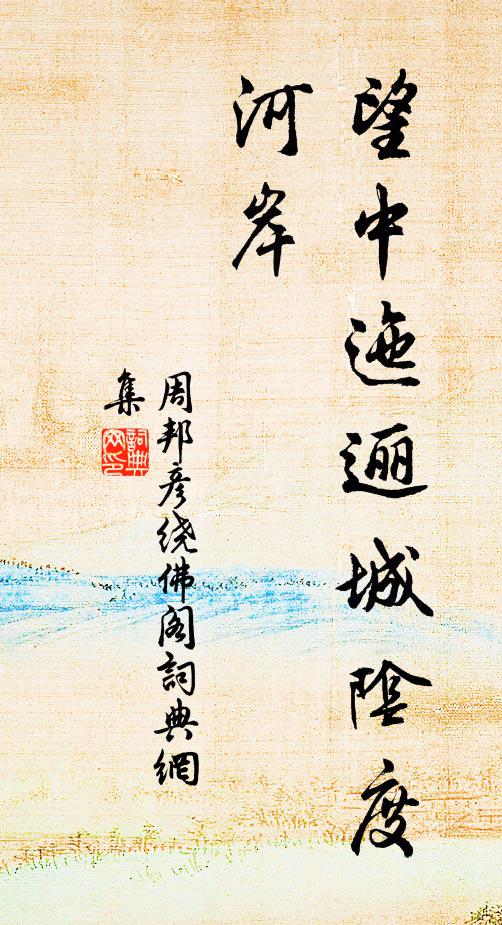 望中迤逦城陰度
河岸
周邦彦绕佛阁詞典網
集
詞典
网印